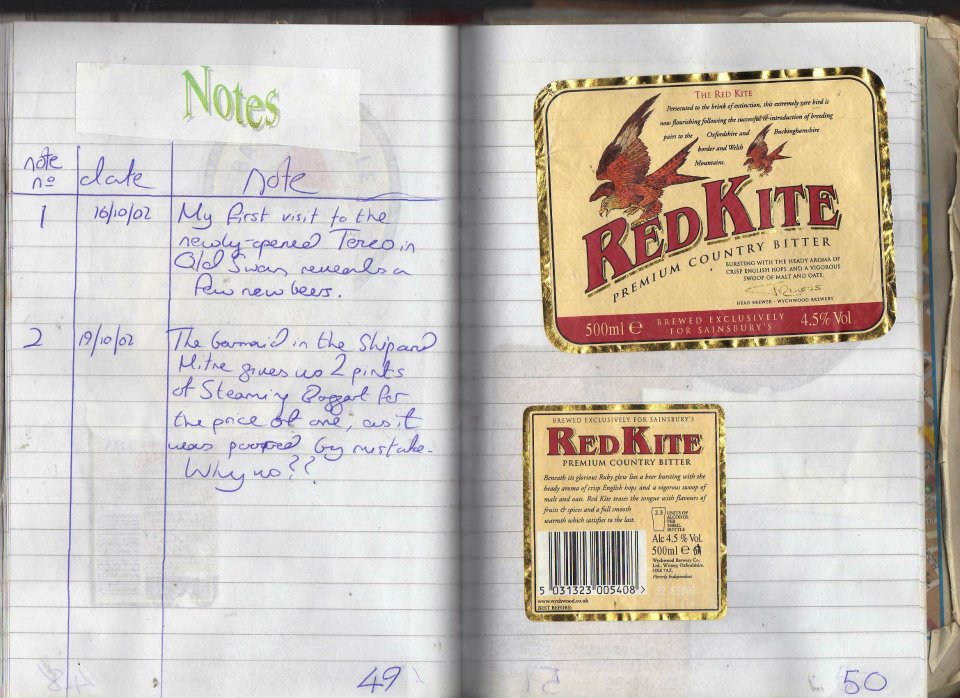 Notes
note no date note
1 16/10/02 My first visit to the
newly-opened Tesco in
Old Swan reveals a
few new beers.
2 19/10/02 The barmaid in the Ship and
Mitre gives us 2 pints
of Steaming Boggart for
the price of one, as it
was poured by mistake.
Why us??
49
THE RED KITE
Persecuted to the brink of extinction, this extremely rare bird is
now flourishing following the successful re-introduction of breeding
pairs to the Oxfordshire and Buckinghamshire
border and Welsh
Mountains.
RED KITE
PREMIUM COUNTRY BITTER
BURSTING WITH THE HEADY AROMA OF
CRISP ENGLISH HOPS AND A VIGOROUS
SWOOP OF MALT AND OATS.
HEAD BREWER - WYCHWOOD BREWERY
500ml e BREWED EXCLUSIVELY FOR SAINSBURY'S 4.5% Vol
BREWED EXCLUSIVELY FOR SAINSBURY'S
RED KITE
PREMIUM COUNTRY BITTER
Beneath its glorious Ruby glow lies a beer bursting with the
heady aroma of crisp English hops and a vigorous swoop of
malt and oats. Red Kite teases the tongue with flavours of
fruits & spices and a full smooth
warmth which satisfies to the last.
2.3 UNITS OF
ALCOHOL
PER
500ML
BOTTLE
Alc 4.5 % Vol.
500ml e
Wychwood Brewery Co.
Ltd., Witney, Oxfordshire.
OX8 7AZ.
Fiercely Independent
5 031323 005408 >
www.wychwood.co.uk
BEST BEFORE:
50